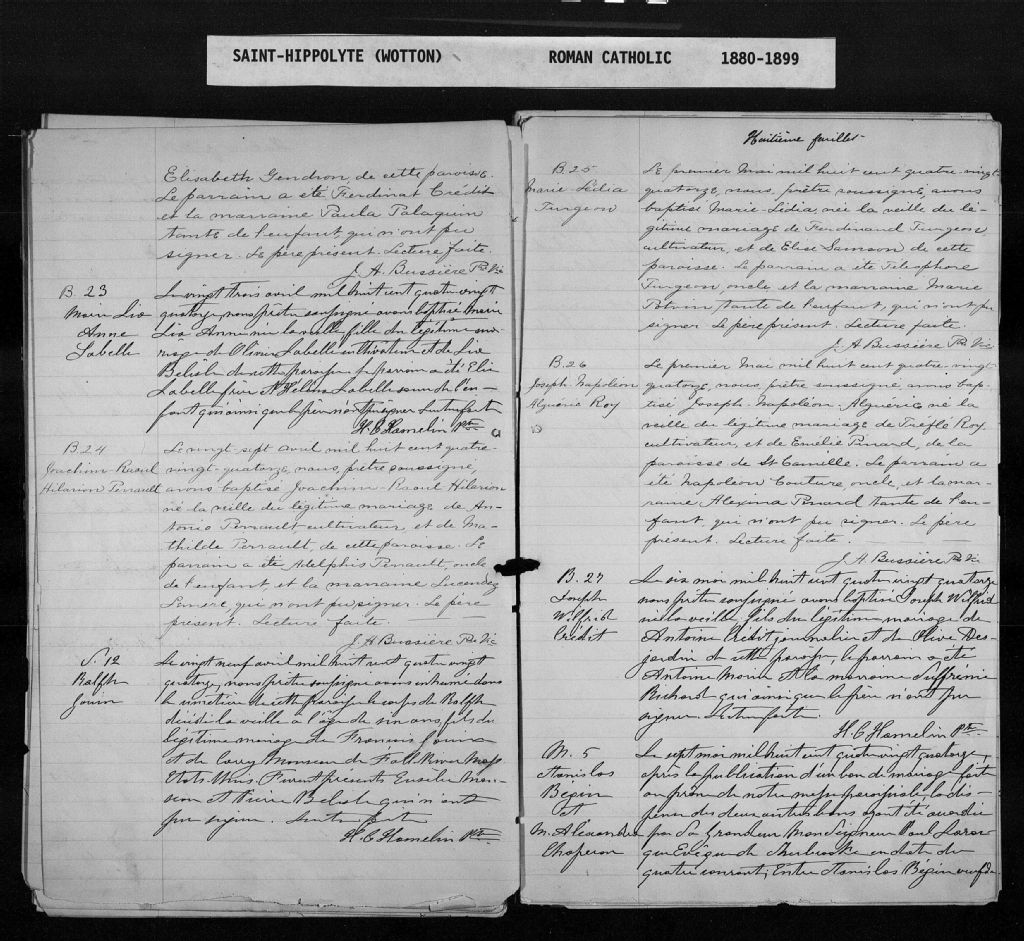 SAINT-HIPPOLYTE (WOTTON) ROMAN CATHOLIC 1880-1899
Elisabeth Gendron, de cette paroisse.
Le parrain a été Ferdinat Crédit
et la marraine Paula Palaquin
tante de l'enfant, qui n'ont pu
signer. Le père présent. Lecture faite.
J. A. Bussière Ptre Vic
B. 23
Marie Lia
Anne
Labelle
Le vingt trois avril mil huit cent quatre vingt
quatorze, nous prêtre soussigné avons baptisé Marie
Lia Anne née la veille fille du légitime ma-
riage de Olivier Labelle cultivateur et de Lia
Belisle de cette paroisse le parrain a été Elie
Labelle frère et Helena Labelle soeur de l'en-
fant qui ainsi que le père n'ont pu signer lecture faite
H. C Hamelin Ptre
B. 24
Joachim-Raoul
Hilarion Perrault
Le vingt-sept avril mil huit cent quatre-
vingt-quatorze, nous, prêtre soussigné,
avons baptisé Joachim-Raoul Hilarion
né la veille du légitime mariage de An-
tonio Perrault cultivateur, et de Ma-
thilde Perrault, de cette paroisse. Le
parrain a été Adelphis Perrault, oncle
de l'enfant et la marraine
qui n'ont pu signer. Le père
présent. Lecture faite.
J. A Bussière Ptre Vic
S. 12
Ralfth
Jouin
Le vingt neuf avril mil huit cent quatre vingt
quatorze, nous prêtre soussigné avons inhumé dans
le cimetière de cette paroisse le corps de Ralfth
décédé la veille à l'âge de cinq ans, fils du
légitime mariage de Francois
et de Monseau de Fall River Mass
Etats-Unis. Furent présents
et Pierre Belisle qui n'ont
pu signer. Lecture faite
H. C Hamelin Ptre
Huitième feuillet
B. 25
Marie-Lédia
Turgeon
Le premier Mai mil huit cent quatre-vingt
quatorze, nous, prêtre soussigné, avons
baptisé Marie-Lédia, née la veille du lé-
gitime mariage de Ferdinand Turgeon
cultivateur, et de Elise Samson de cette
paroisse. Le parrain a été Télesphore
Turgeon, oncle et la marraine Marie
Potvin, tante de l'enfant, qui n'ont pu
signer Le père présent. Lecture faite.
J. A Bussière Ptre Vic
B. 26
Joseph Napoléon
Alguérie Roy
Le premier Mai mil huit cent quatre-vingt
quatorze, nous, prêtre soussigné avons bap-
tisé Joseph-Napoléon-Alguérie né la
veille du légitime mariage de Tréflé Roy
cultivateur, et de Emélie Pinard, de la
paroisse de St Camille. Le parrain a
été Napoléon Couture, oncle, et la mar-
raine, Alexina Pinard tante de l'en-
fant, qui n'ont pu signer. Le père
présent. Lecture faite.
J. A Bussière Ptre Vic
B. 27
Joseph
Wilfrid
Crédit
Le six mai mil huit cent quatre vingt quatorze
nous prêtre soussigné avons baptisé Joseph Wilfrid
né la veille fils du légitime mariage de
Antoine Crédit journalier et de Olive Des-
jardin de cette paroisse, le parrain a été
Antoine Morin et la marraine Euffrénie
Richard qui ainsi que le père n'ont pu
signer. Lecture faite.
H. C Hamelin Ptre
M. 5
Stanislas
Bégin
et
M. Alexandre
Chaperon
Le sept mai mil huit cent quatre vingt quatorze,
après la publication d'un ban de mariage faite
au prône de notre messe paroissiale, la dis-
pense des deux autres bans ayant été accordée
par Sa Grandeur Monseigneur Paul Laroc-
que Evêque de Sherbrooke en date du
quatre courant; Entre Stanislas Bégin veuf de